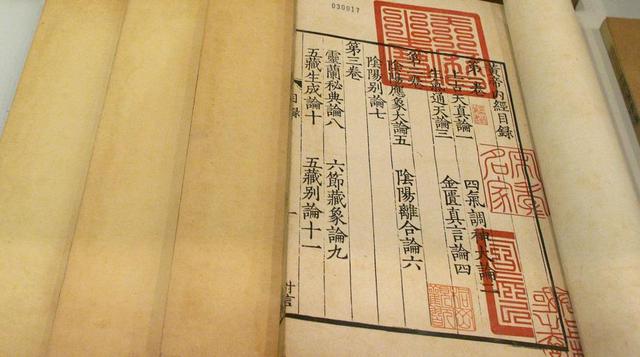 030017
黃帝內經目錄
第一卷
上古天真論一 四氣調神大論二
生氣通天論三 金匱真言論四
第二卷
陰陽應象大論五 陰陽離合論六
陰陽別論七
第三卷
靈蘭秘典論八 六節藏象論九
五藏生成論十 五藏別論十一
目錄